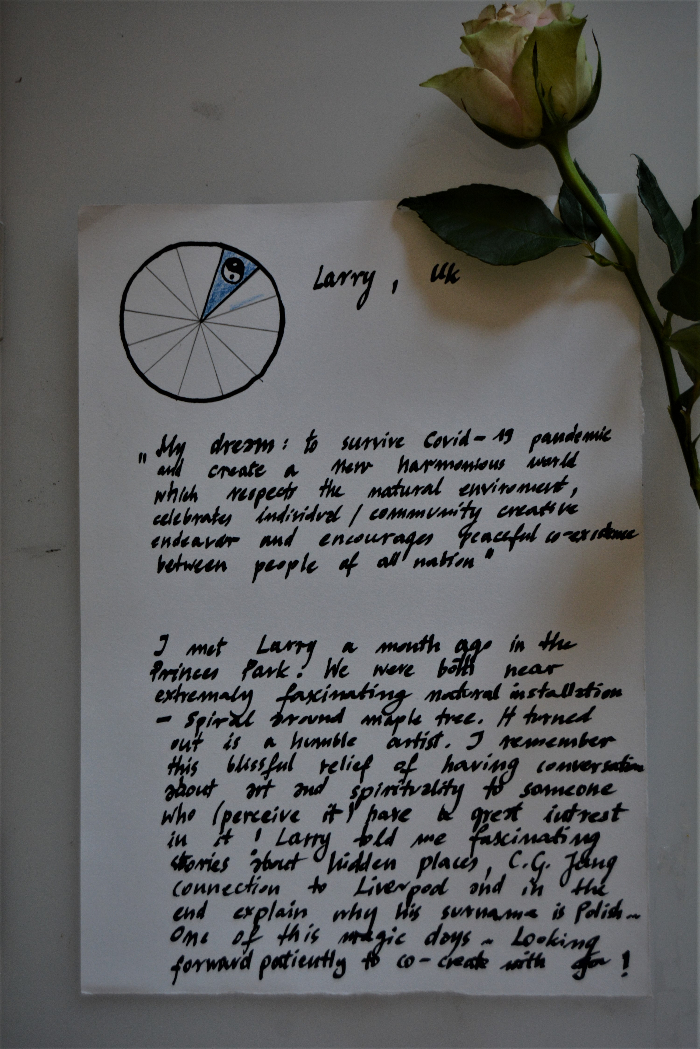 Larry, Uk
"My dream: to survive Covid-19 pandemic
and create a new harmonious world
which respects the natural enviroment,
celebrates individual / community creative
endeaver and encourages peaceful co-existence
between people of all nation"
I met Larry a month ago in the
Princes Park! We were both near
extremaly fascinating natural installation
- Spiral around maple tree. It turned
out is a humble artist. I remember
this blissful relief of having conversation
about art and spirituality to someone
who (perceive it) have a great intrest
in it! Larry told me fascinating
stories about hidden places, C.G. Jung
connection to Liverpool and in the
end explain why his surname is Polish~
One of this magic days ~ Looking
forward patiently to co-create with you!